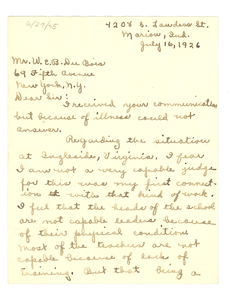 4208 S. Landess St.
Marion, Ind.
July 16, 1926
Mr. W. E. B. Du Bois
69 Fifth Avenue
New York, N.Y.
Dear Sir:
I received your communication
but because of illness could not
answer.
Regarding the situation
at Ingleside, Virginia, I fear
I am not a very capable judge
for this was my first connect-
ion with that kind of work.
I feel that the heads of the school
are not capable leaders because
of their physical conditions
Most of the teachers are not
capable because of lack of
training. But that being a